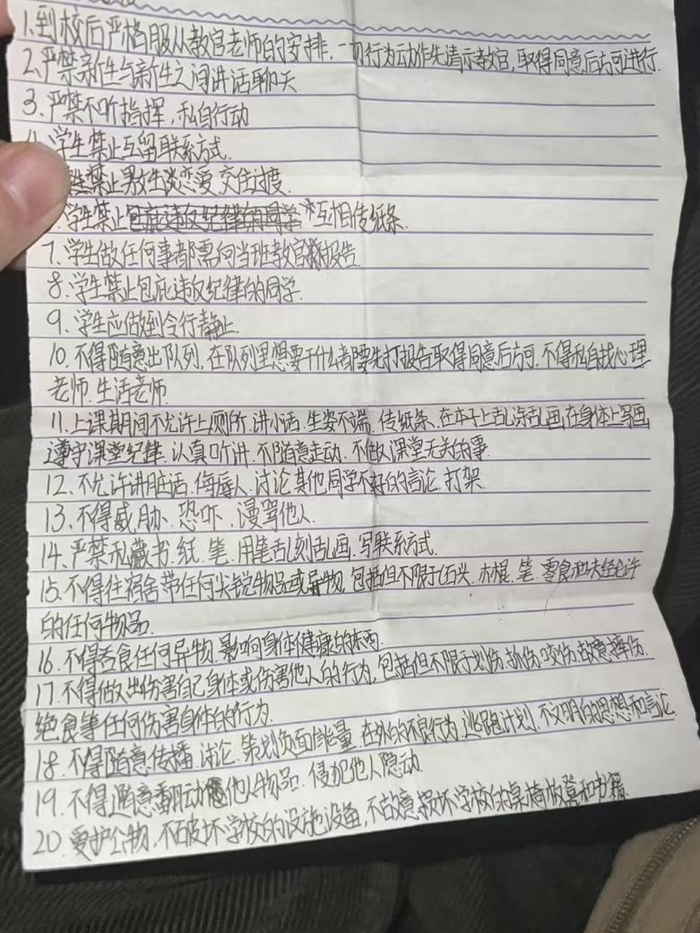 1.到校后严格服从教官老师的安排,一切行为动作先请示教官,取得同意后方可进行.
2.严禁新生与新生之间讲话聊天
3.严禁不听指挥,私自行动
学生禁止互留联系方式.
禁止男女生谈恋爱 交往过度.
学生禁止包庇违反纪律的同学 *互相传纸条.
7.学生做任何事都需向当班教官报告.
8.学生禁止包庇违反纪律的同学.
9.学生应做到令行静止.
10.不得随意出队列.在队列里想要干什么都要先打报告取得同意后方可.不得私自找心理
老师.生活老师.
11.上课期间不允许上厕所.讲小话.坐姿不端.传纸条.在本子上乱涂乱画.在身体上写画
遵守课堂纪律.认真听讲.不随意走动.不做与课堂无关的事.
12.不允许讲脏话.侮辱人.讨论其他同学不好的言论.打架.
13.不得威胁.恐吓.漫骂他人.
14.严禁私藏书.纸.笔.用笔乱刻乱画.写联系方式.
15.不得往宿舍带任何尖锐物品或异物.包括但不限于石头.木棍.笔.零食和未经允许
的任何物品.
16.不得吞食任何异物.影响身体健康的东西.
17.不得做出伤害自己身体或伤害他人的行为,包括但不限于划伤.抓伤.咬伤.故意摔伤.
绝食等任何伤害身体的行为.
18.不得随意传播.讨论.策划负面能量.在外的不良行为.逃跑计划.不文明的思想和言论
19.不得随意翻动他人物品.侵犯他人隐动.
20.爱护公物,不破坏学校的设施设备,不故意损坏学校的桌椅放凳和书籍.